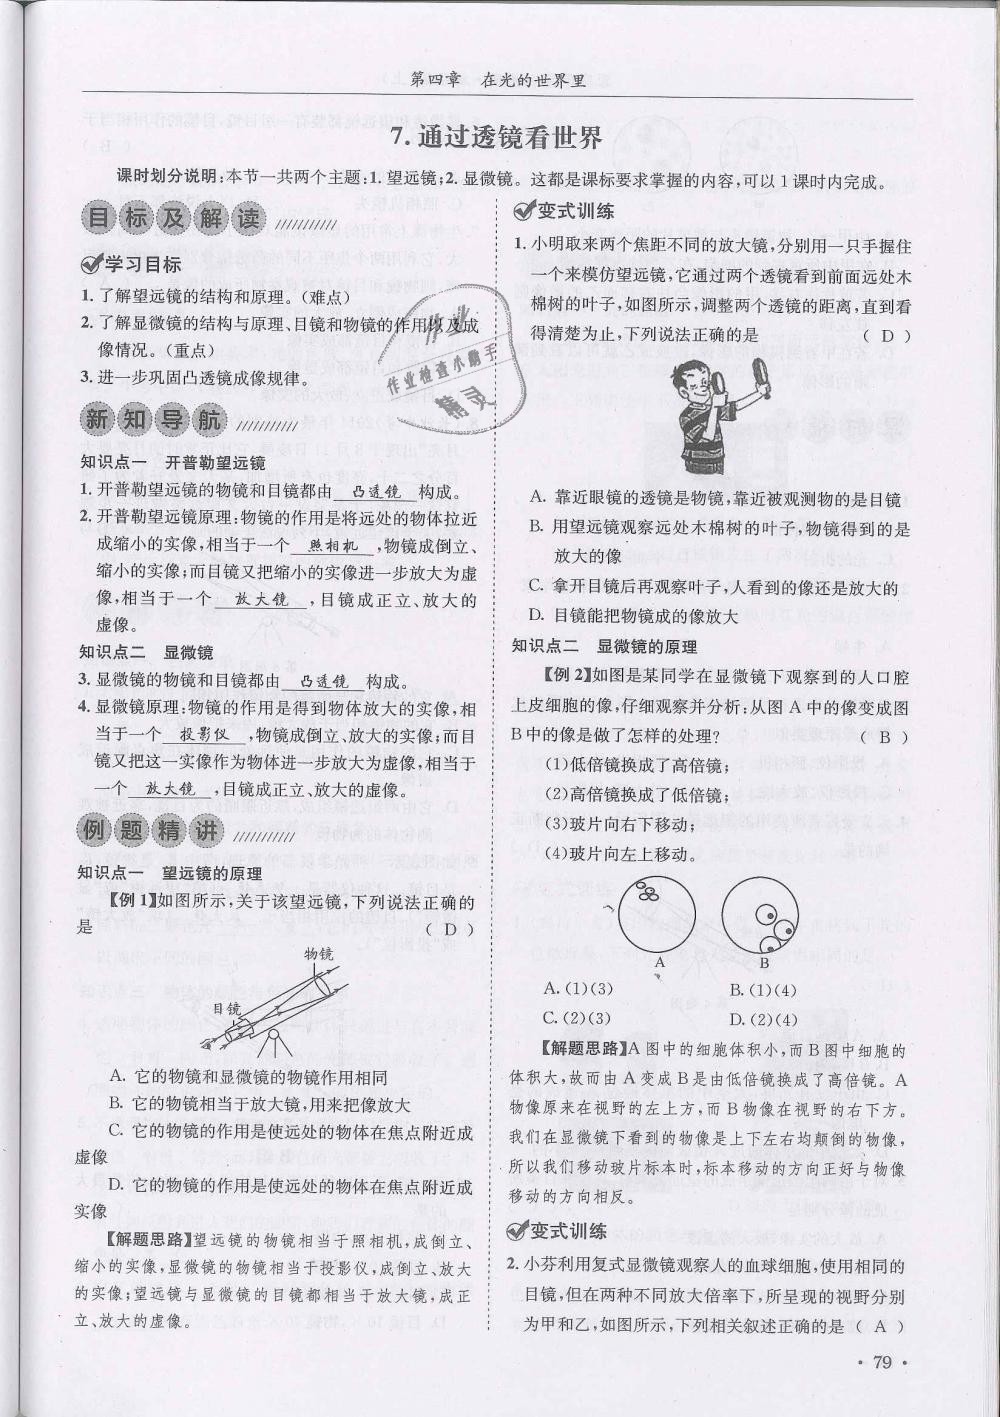 第四章　在光的世界里
7. 通过透镜看世界
课时划分说明:本节一共两个主题:1. 望远镜;2. 显微镜。这都是课标要求掌握的内容,可以 1 课时内完成。
目标及解读
学习目标
1. 了解望远镜的结构和原理。(难点)
2. 了解显微镜的结构与原理、目镜和物镜的作用以及成
像情况。(重点)
3. 进一步巩固凸透镜成像规律。
作业
作业检查小助手
精灵
新知导航
知识点一　开普勒望远镜
1. 开普勒望远镜的物镜和目镜都由 凸透镜 构成。
2. 开普勒望远镜原理:物镜的作用是将远处的物体拉近
成缩小的实像,相当于一个 照相机 ,物镜成倒立、
缩小的实像;而目镜又把缩小的实像进一步放大为虚
像,相当于一个 放大镜 ,目镜成正立、放大的
虚像。
知识点二　显微镜
3. 显微镜的物镜和目镜都由 凸透镜 构成。
4. 显微镜原理:物镜的作用是得到物体放大的实像,相
当于一个 投影仪 ,物镜成倒立、放大的实像;而目
镜又把这一实像作为物体进一步放大为虚像,相当于
一个 放大镜 ,目镜成正立、放大的虚像。
例题精讲
知识点一　望远镜的原理
【例 1】如图所示,关于该望远镜,下列说法正确的
是 ( D )
物镜
目镜
A. 它的物镜和显微镜的物镜作用相同
B. 它的物镜相当于放大镜,用来把像放大
C. 它的物镜的作用是使远处的物体在焦点附近成
虚像
D. 它的物镜的作用是使远处的物体在焦点附近成
实像
【解题思路】望远镜的物镜相当于照相机,成倒立、
缩小的实像,显微镜的物镜相当于投影仪,成倒立、放大
的实像;望远镜与显微镜的目镜都相当于放大镜,成正
立、放大的虚像。
变式训练
1. 小明取来两个焦距不同的放大镜,分别用一只手握住
一个来模仿望远镜,它通过两个透镜看到前面远处木
棉树的叶子,如图所示,调整两个透镜的距离,直到看
得清楚为止,下列说法正确的是 ( D )
A. 靠近眼镜的透镜是物镜,靠近被观测物的是目镜
B. 用望远镜观察远处木棉树的叶子,物镜得到的是
放大的像
C. 拿开目镜后再观察叶子,人看到的像还是放大的
D. 目镜能把物镜成的像放大
知识点二　显微镜的原理
【例 2】如图是某同学在显微镜下观察到的人口腔
上皮细胞的像,仔细观察并分析:从图 A 中的像变成图
B 中的像是做了怎样的处理? ( B )
(1)低倍镜换成了高倍镜;
(2)高倍镜换成了低倍镜;
(3)玻片向右下移动;
(4)玻片向左上移动。
A B
A. (1)(3) B. (1)(4)
C. (2)(3) D. (2)(4)
【解题思路】A 图中的细胞体积小,而 B 图中细胞的
体积大,故而由 A 变成 B 是由低倍镜换成了高倍镜。A
物像原来在视野的左上方,而 B 物像在视野的右下方。
我们在显微镜下看到的物像是上下左右均颠倒的物像,
所以我们移动玻片标本时,标本移动的方向正好与物像
移动的方向相反。
变式训练
2. 小芬利用复式显微镜观察人的血球细胞,使用相同的
目镜,但在两种不同放大倍率下,所呈现的视野分别
为甲和乙,如图所示,下列相关叙述正确的是 ( A )
· 79 ·